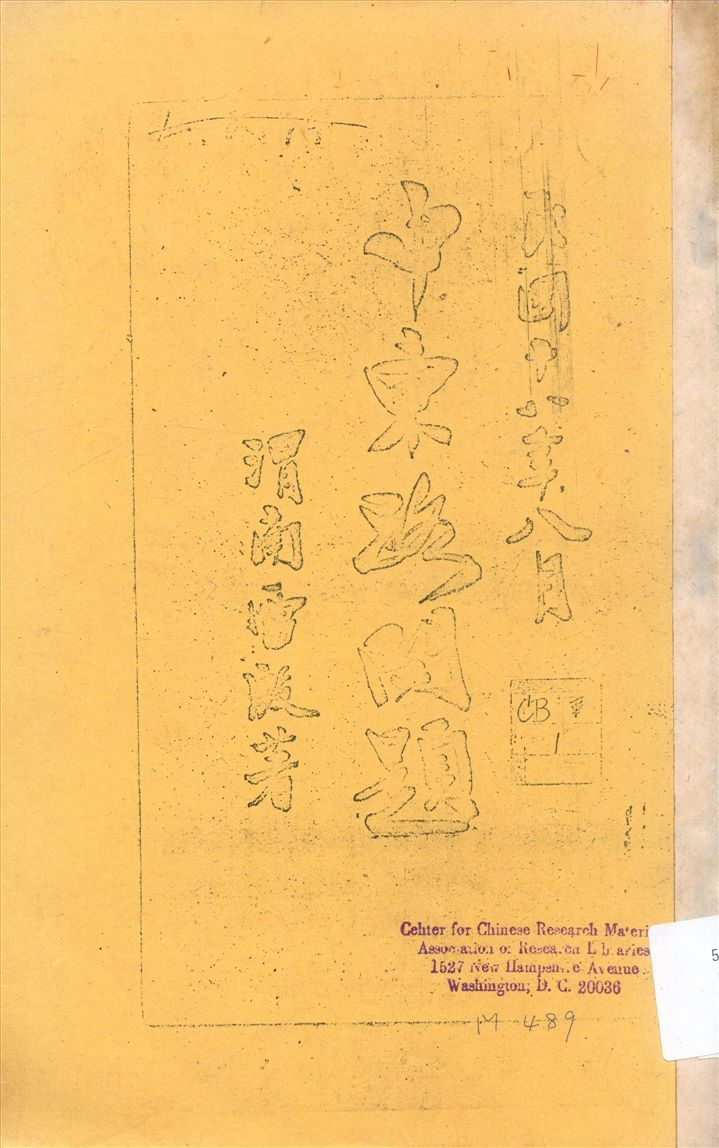 民國十八年八月
中東路問題
渭南雷殷著
CB
1
Center for Chinese Research Materi
Association of Research Libraries
1527 New Hampshire Avenue
Washington, D. C. 20036
M 489
5